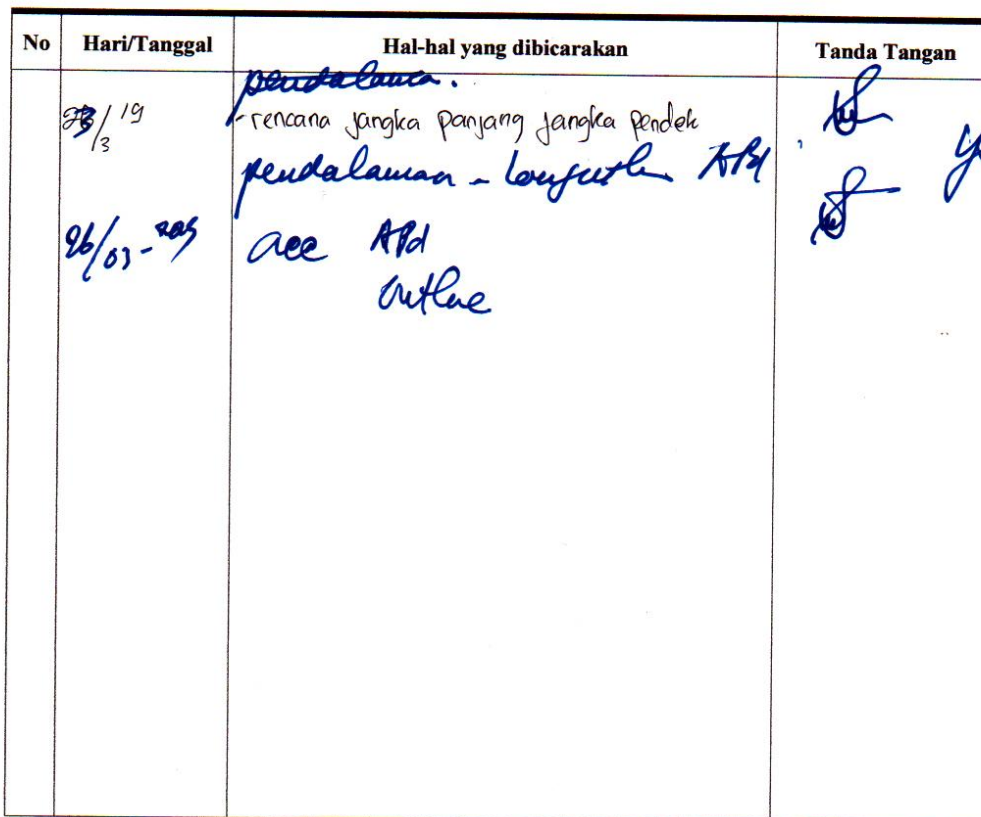 No Hari/Tanggal Hal-hal yang dibicarakan Tanda Tangan
pendalaman.
/3 19 - rencana jangka panjang jangka pendek
pendalaman - APd
26/03- acc APd
outline